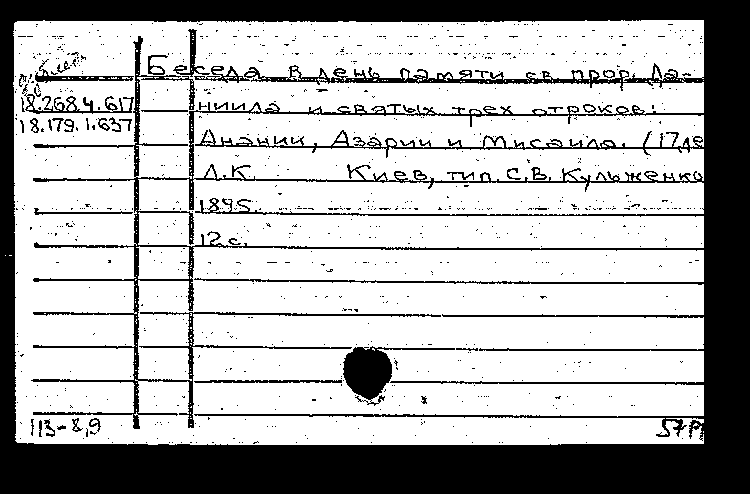 Беседа в день памяти св прор. Да-
18.268.4.617 ниила и святых трех отроков:
18.179.1.637 Анании, Азарии и Мисаила. (17 де
Л.К. Киев, тип. С.В. Кульженко
1895.
12 с.
113-8,9